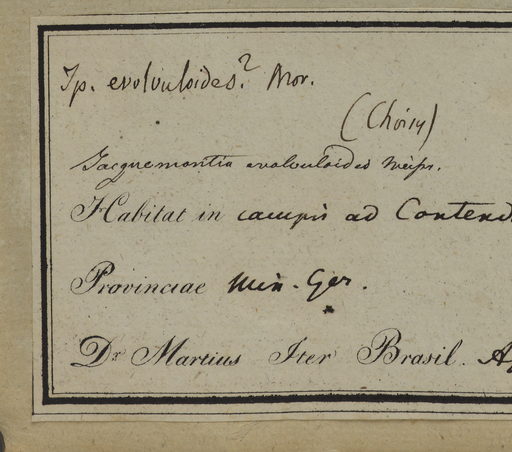 Ip. evolvuloides? Mor.
(Choisy)
Jacquemontia evolvuloides Meisn.
Habitat in campis ad Contend
Provinciae Min. Ger.
Dr. Martius Iter Brasil.